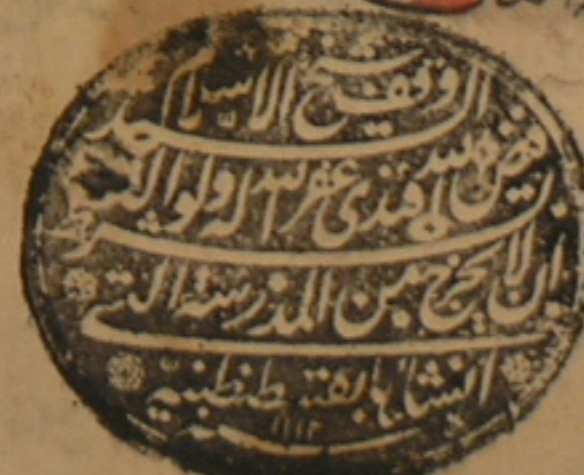 وقف شيخ الاسلام السيد
فيض الله افندى غفر الله له ولوالديه بشرط
ان لا يخرج من المدرسة التى
انشاها بقسطنطنية
١١١٢